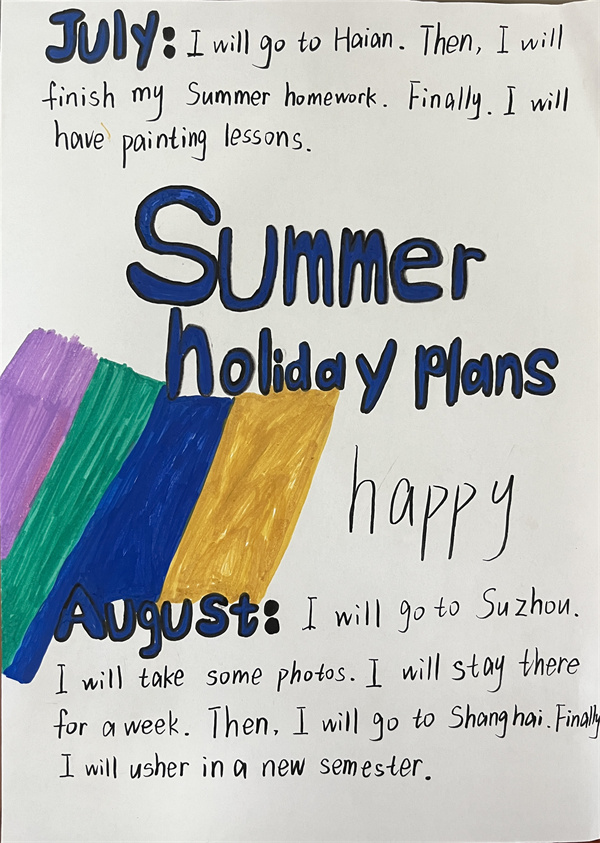 July: I will go to Haian. Then, I will
finish my Summer homework. Finally. I will
have painting lessons.
Summer
holiday plans
happy
August: I will go to Suzhou.
I will take some photos. I will stay there
for a week. Then, I will go to Shanghai. Finally
I will usher in a new semester.